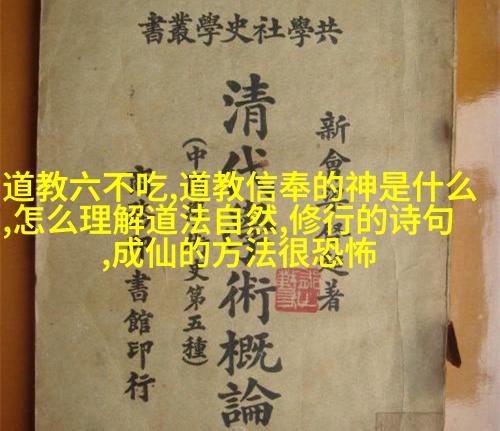 共學社史學叢書
道教六不吃,道教信奉的神是什么
,怎么理解道法自然,修行的诗句
,成仙的方法很恐怖
新會著
清代術概論
(中史第五種)
書館印行